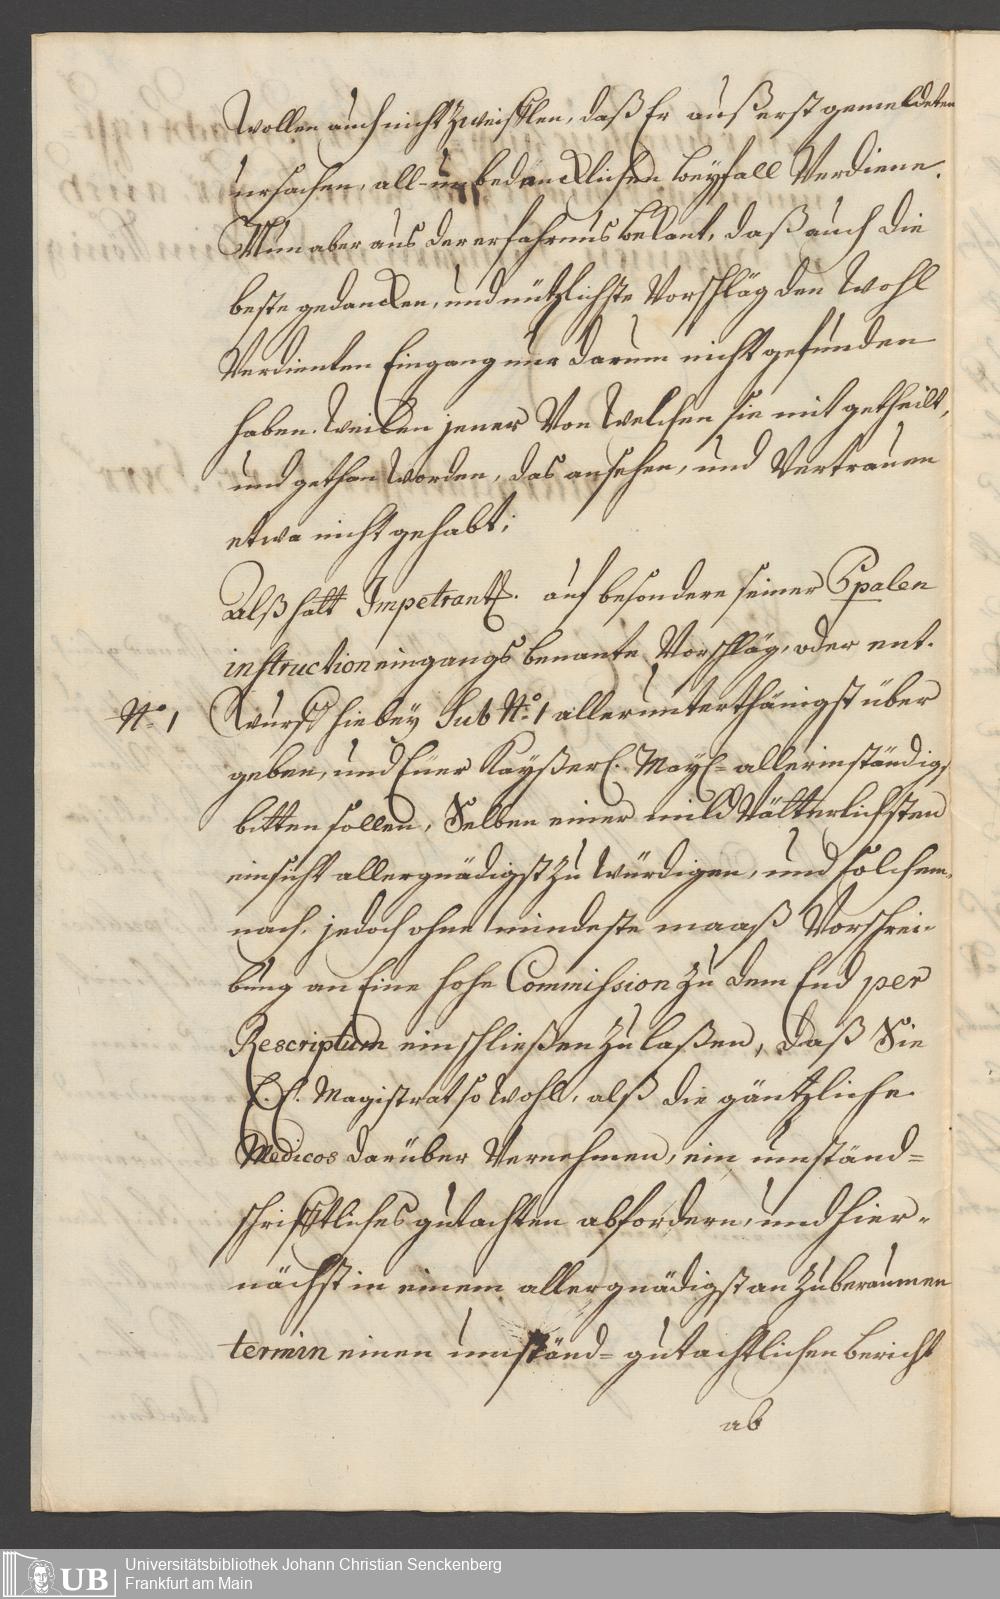 Wollen auch nicht zweifflen, daß Er auß erst gemeldeten
ursachen, all-unbedencklichen beyfall Verdiene.
Nun aber aus der erfahrnus bekant, daß auch die
beste gedancken, und nützlichste Vorschläg den Wohl
Verdienten Eingang nur darum nicht gefunden
haben. Weilen jener Von Welchen sie mit getheilt,
und gethan Worden, das ansehen, und Vertrauen
etwa nicht gehabt;
Alß hatt Impetrant. auf besondere seiner Ppalen
instruction eingangs benante Vorschläg, oder ent-
No. 1 Wurff hiebey Sub No. 1 allerunterthänigst über
geben, und Euer Kayßerl. May. allerinständigst
bitten sollen, Selben einer mild Vätterlichsten
einsicht allergnädigst zu würdigen, und solchem-
nach, jedoch ohne mindeste maaß Vorschrei-
bung an Eine hohe Commission zu dem End per
Rescriptum einschließen zu laßen, daß Sie
E. E. Magistrat so Wohl, alß die gäntzliche
Medicos darüber Vernehmen, ein umständ=
schrifftliches gutachten abfordern, und hier-
nächst in einem allergnädigst an zuberaumen
termin einen umständ= gutachtlichen bericht
ab
UB
Universitätsbibliothek Johann Christian Senckenberg
Frankfurt am Main